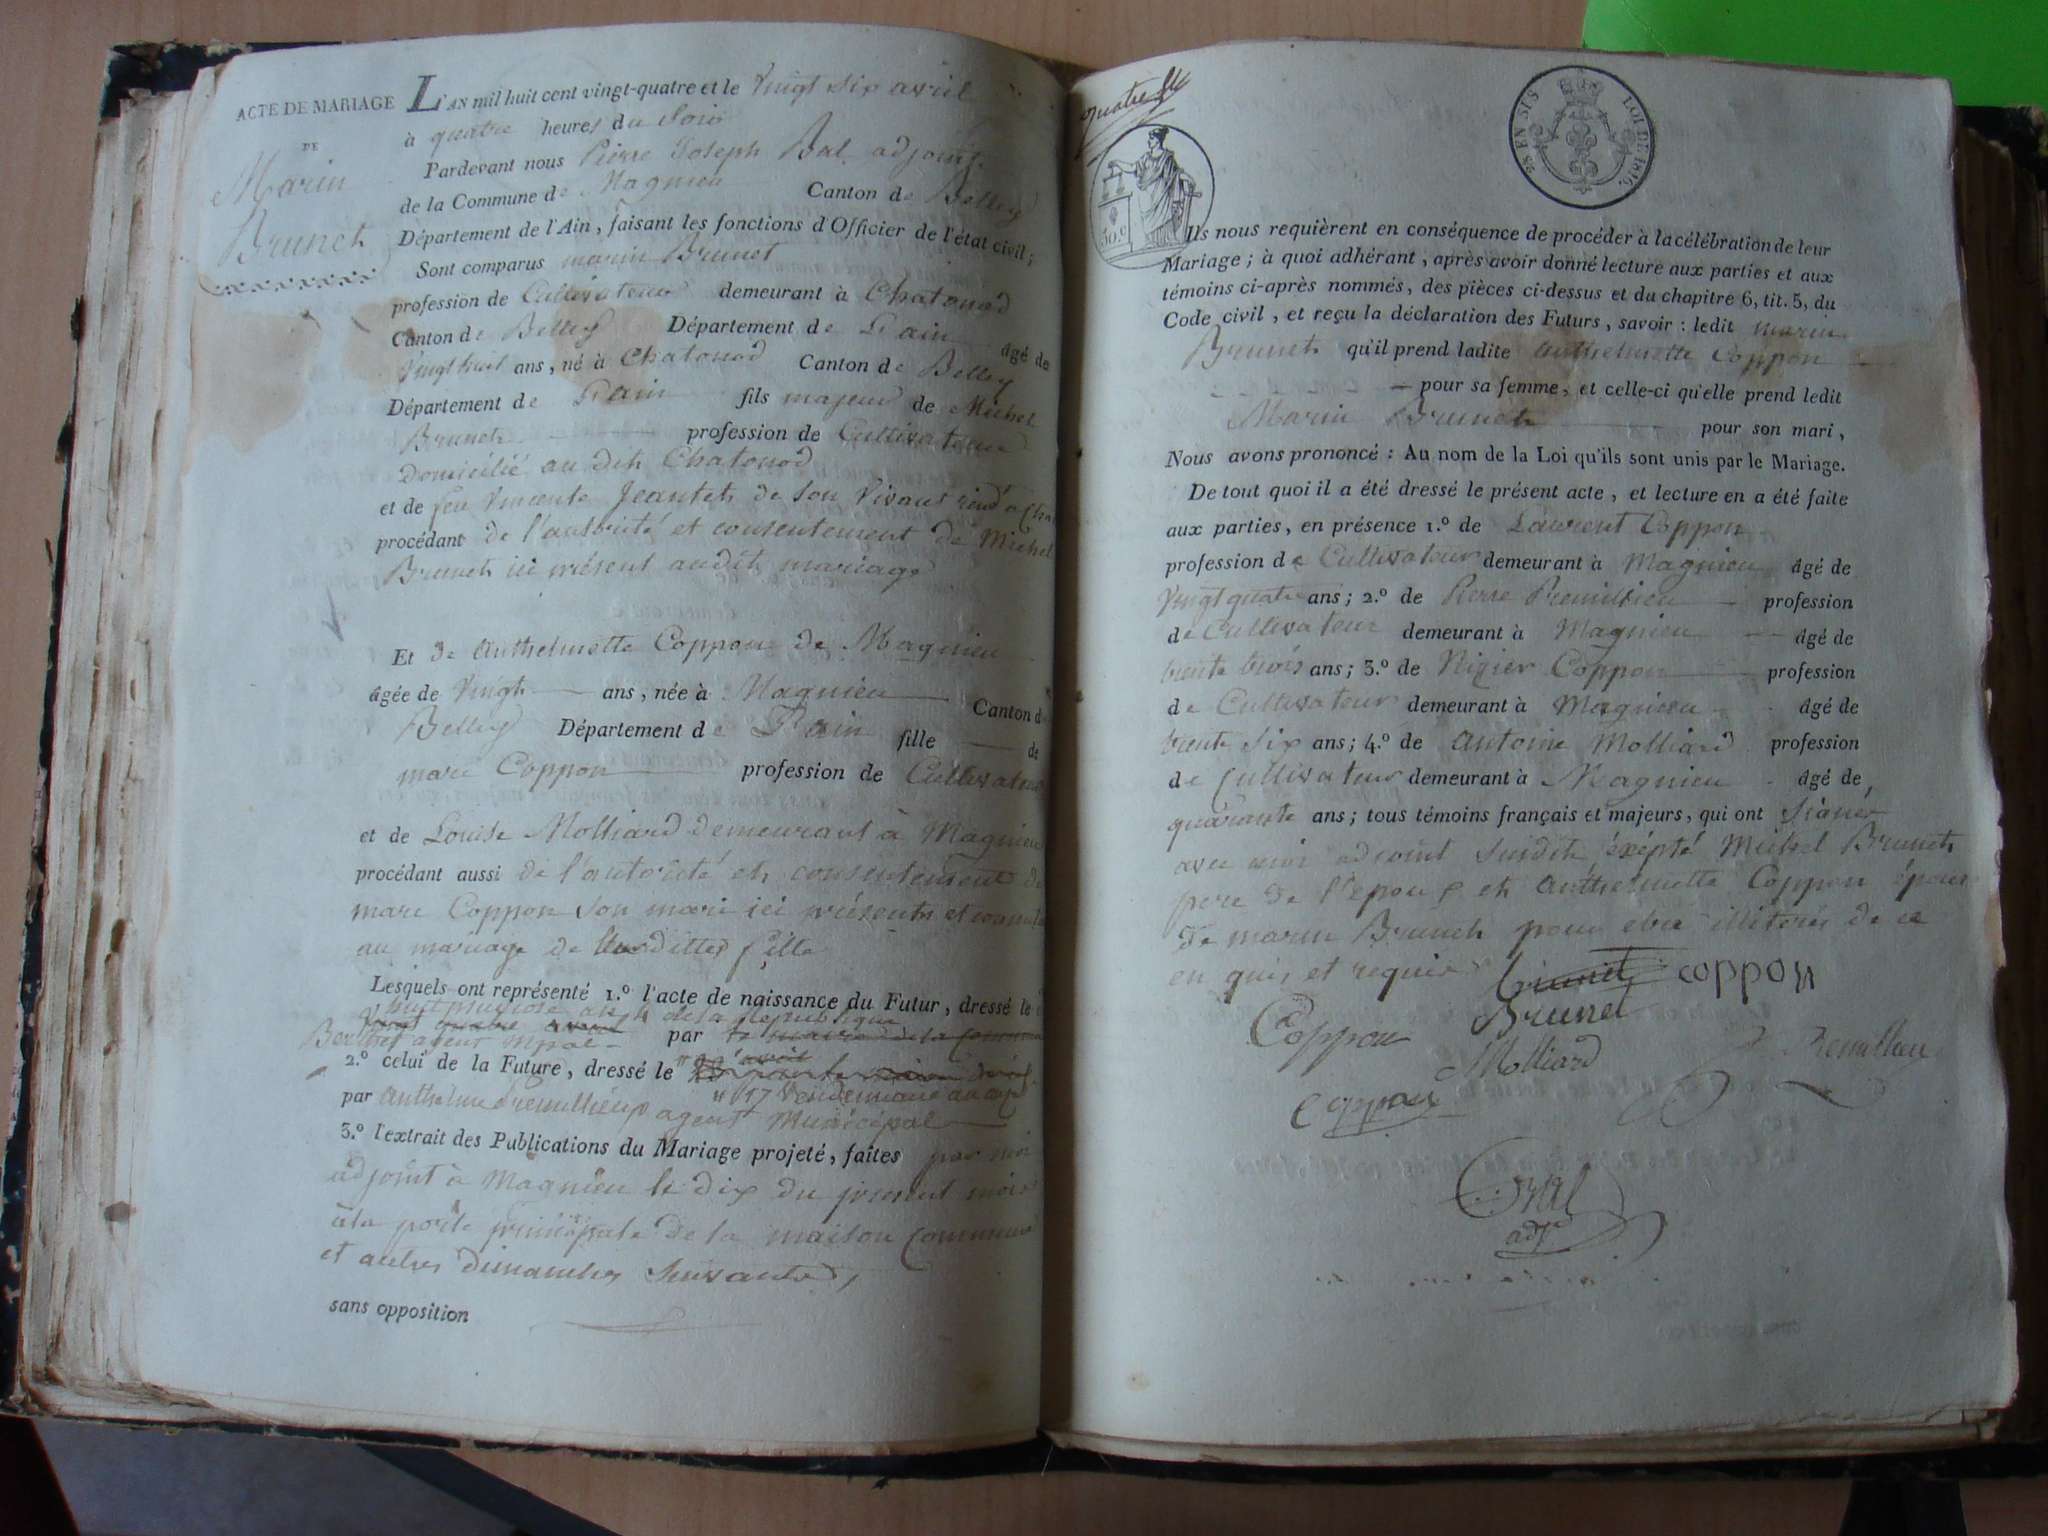 ACTE DE MARIAGE
DE
Marin
Brunet
L'AN mil huit cent vingt-quatre et le Vingt Six avril
à quatre heures du Soir
Pardevant nous Pierre Joseph Bal adjoint
de la Commune de Magnieu Canton de Belley
Département de l'Ain, faisant les fonctions d'Officier de l'état civil;
Sont comparus marin Brunet
profession de Cultivateur demeurant à Chatonod
Canton de Belley Département de l'ain âgé de
Vingt huit ans, né à Chatonod Canton de Belley
Département de l'ain fils majeur de Michel
Brunet profession de Cultivateur
Domicilié au dit Chatonod
et de feu Vincente Jeantet de son Vivant
procédant de l'autorité et consentement de Michel
Brunet ici présent audit mariage
Et de Anthelmette Coppon de Magnieu
âgée de Vingt ans, née à Magnieu Canton de
Belley Département de l'ain fille de
marc Coppon profession de Cultivateur
et de Louise Molliard demeurant à Magnieu
procédant aussi de l'autorité et consentement de
marc Coppon son mari ici présents et
au mariage de leurdittes fille
Lesquels ont représenté 1.º l'acte de naissance du Futur, dressé le
huit an 4 de la République
Berthet agent Mpal par le maire de la Commune
2.º celui de la Future, dressé le
17 Vendemiaire an
par Anthelme Premillieux agent Municipal
3.º l'extrait des Publications du Mariage projeté, faites par moi
adjoint à Magnieu le dix du présent mois
à la porte principale de la maison Commune
et autres dimanches Suivants,
sans opposition
quatre
30.c
28 EN SUS
LOI DE 1816.
Ils nous requièrent en conséquence de procéder à la célébration de leur
Mariage; à quoi adhérant, après avoir donné lecture aux parties et aux
témoins ci-après nommés, des pièces ci-dessus et du chapitre 6, tit. 5, du
Code civil, et reçu la déclaration des Futurs, savoir: ledit marin
Brunet qu'il prend ladite Anthelmette Coppon
pour sa femme, et celle-ci qu'elle prend ledit
Marin Brunet pour son mari,
Nous avons prononcé: Au nom de la Loi qu'ils sont unis par le Mariage.
De tout quoi il a été dressé le présent acte, et lecture en a été faite
aux parties, en présence 1.º de Laurent Coppon
profession de Cultivateur demeurant à Magnieu âgé de
Vingt quatre ans; 2.º de Pierre Premillieu profession
de Cultivateur demeurant à Magnieu âgé de
trente trois ans; 3.º de Nizier Coppon profession
de Cultivateur demeurant à Magnieu âgé de
trente Six ans; 4.º de Antoine Molliard profession
de Cultivateur demeurant à Magnieu âgé de
quarante ans; tous témoins français et majeurs, qui ont Signér
avec moi adjoint Susdit éxépté Michel Brunet
pere de l'epoux et Anthelmette Coppon épouse
de marin Brunet pour etre illiterés de ce
enquis et requis
brunet coppon
Coppon Brunet
Molliard P. Premillieu
Coppon
Bal
adjt